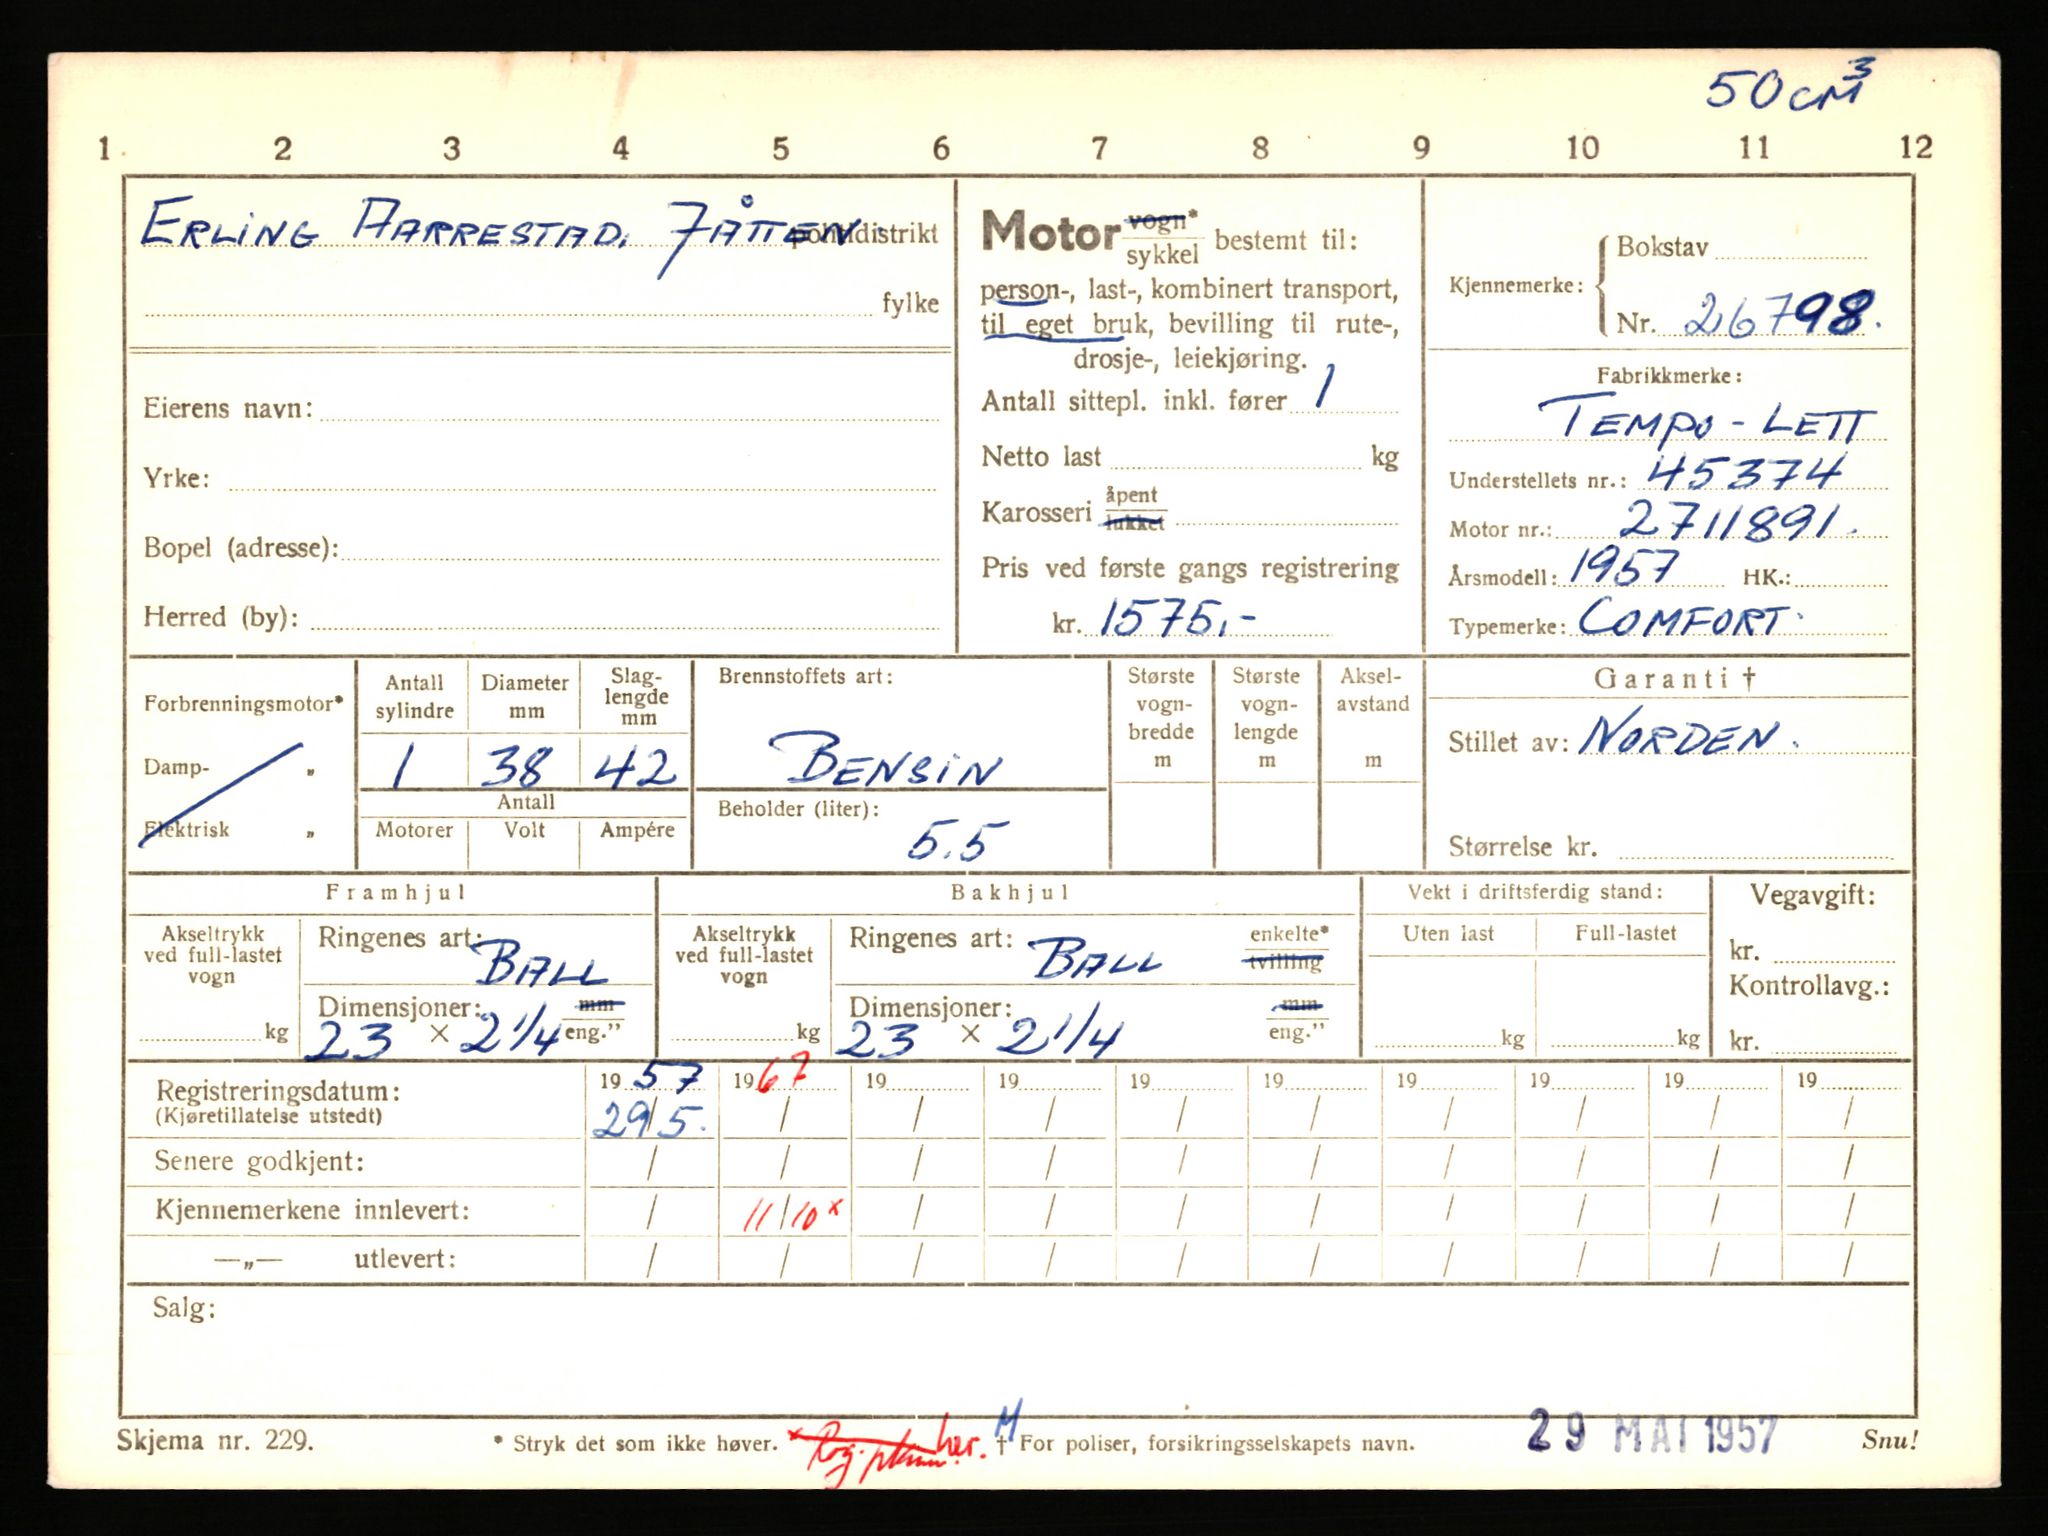 50 cm³
1 2 3 4 5 6 7 8 9 10 11 12
ERLING AARRESTAD. JÅTTEN. politidistrikt
fylke
Eierens navn:
Yrke:
Bopel (adresse):
Herred (by):
Motor vogn* sykkel bestemt til:
person-, last-, kombinert transport,
til eget bruk, bevilling til rute-,
drosje-, leiekjøring.
Antall sittepl. inkl. fører 1
Netto last kg
Karosseri åpent lukket
Pris ved første gangs registrering
kr. 1575,-
Kjennemerke: Bokstav
Nr. 26798.
Fabrikkmerke:
TEMPO - LETT
Understellets nr.: 45374
Motor nr.: 2711891.
Årsmodell: 1957 HK.:
Typemerke: COMFORT.
Forbrenningsmotor*
Damp- „
Elektrisk „
Antall sylindre Diameter mm Slag-lengde mm
1 38 42
Antall
Motorer Volt Ampére
Brennstoffets art:
BENSIN
Beholder (liter):
5.5
Største vogn-bredde m
Største vogn-lengde m
Aksel-avstand m
Garanti †
Stillet av: NORDEN.
Størrelse kr.
Framhjul
Akseltrykk ved full-lastet vogn
kg
Ringenes art: BALL
Dimensjoner: mm
23 × 2 1/4 eng."
Bakhjul
Akseltrykk ved full-lastet vogn
kg
Ringenes art: BALL enkelte* tvilling
Dimensjoner: mm
23 × 2 1/4 eng."
Vekt i driftsferdig stand:
Uten last Full-lastet
kg kg
Vegavgift:
kr.
Kontrollavg.:
kr.
Registreringsdatum: 1957 1967 19 19 19 19 19 19 19 19
(Kjøretillatelse utstedt) 29/5. / / / / / / / / /
Senere godkjent: / / / / / / / / / /
Kjennemerkene innlevert: / 11/10 x / / / / / / / /
—„— utlevert: / / / / / / / / / /
Salg:
Skjema nr. 229. * Stryk det som ikke høver. x Reg. her. M † For poliser, forsikringsselskapets navn. 29 MAI 1957 Snu!